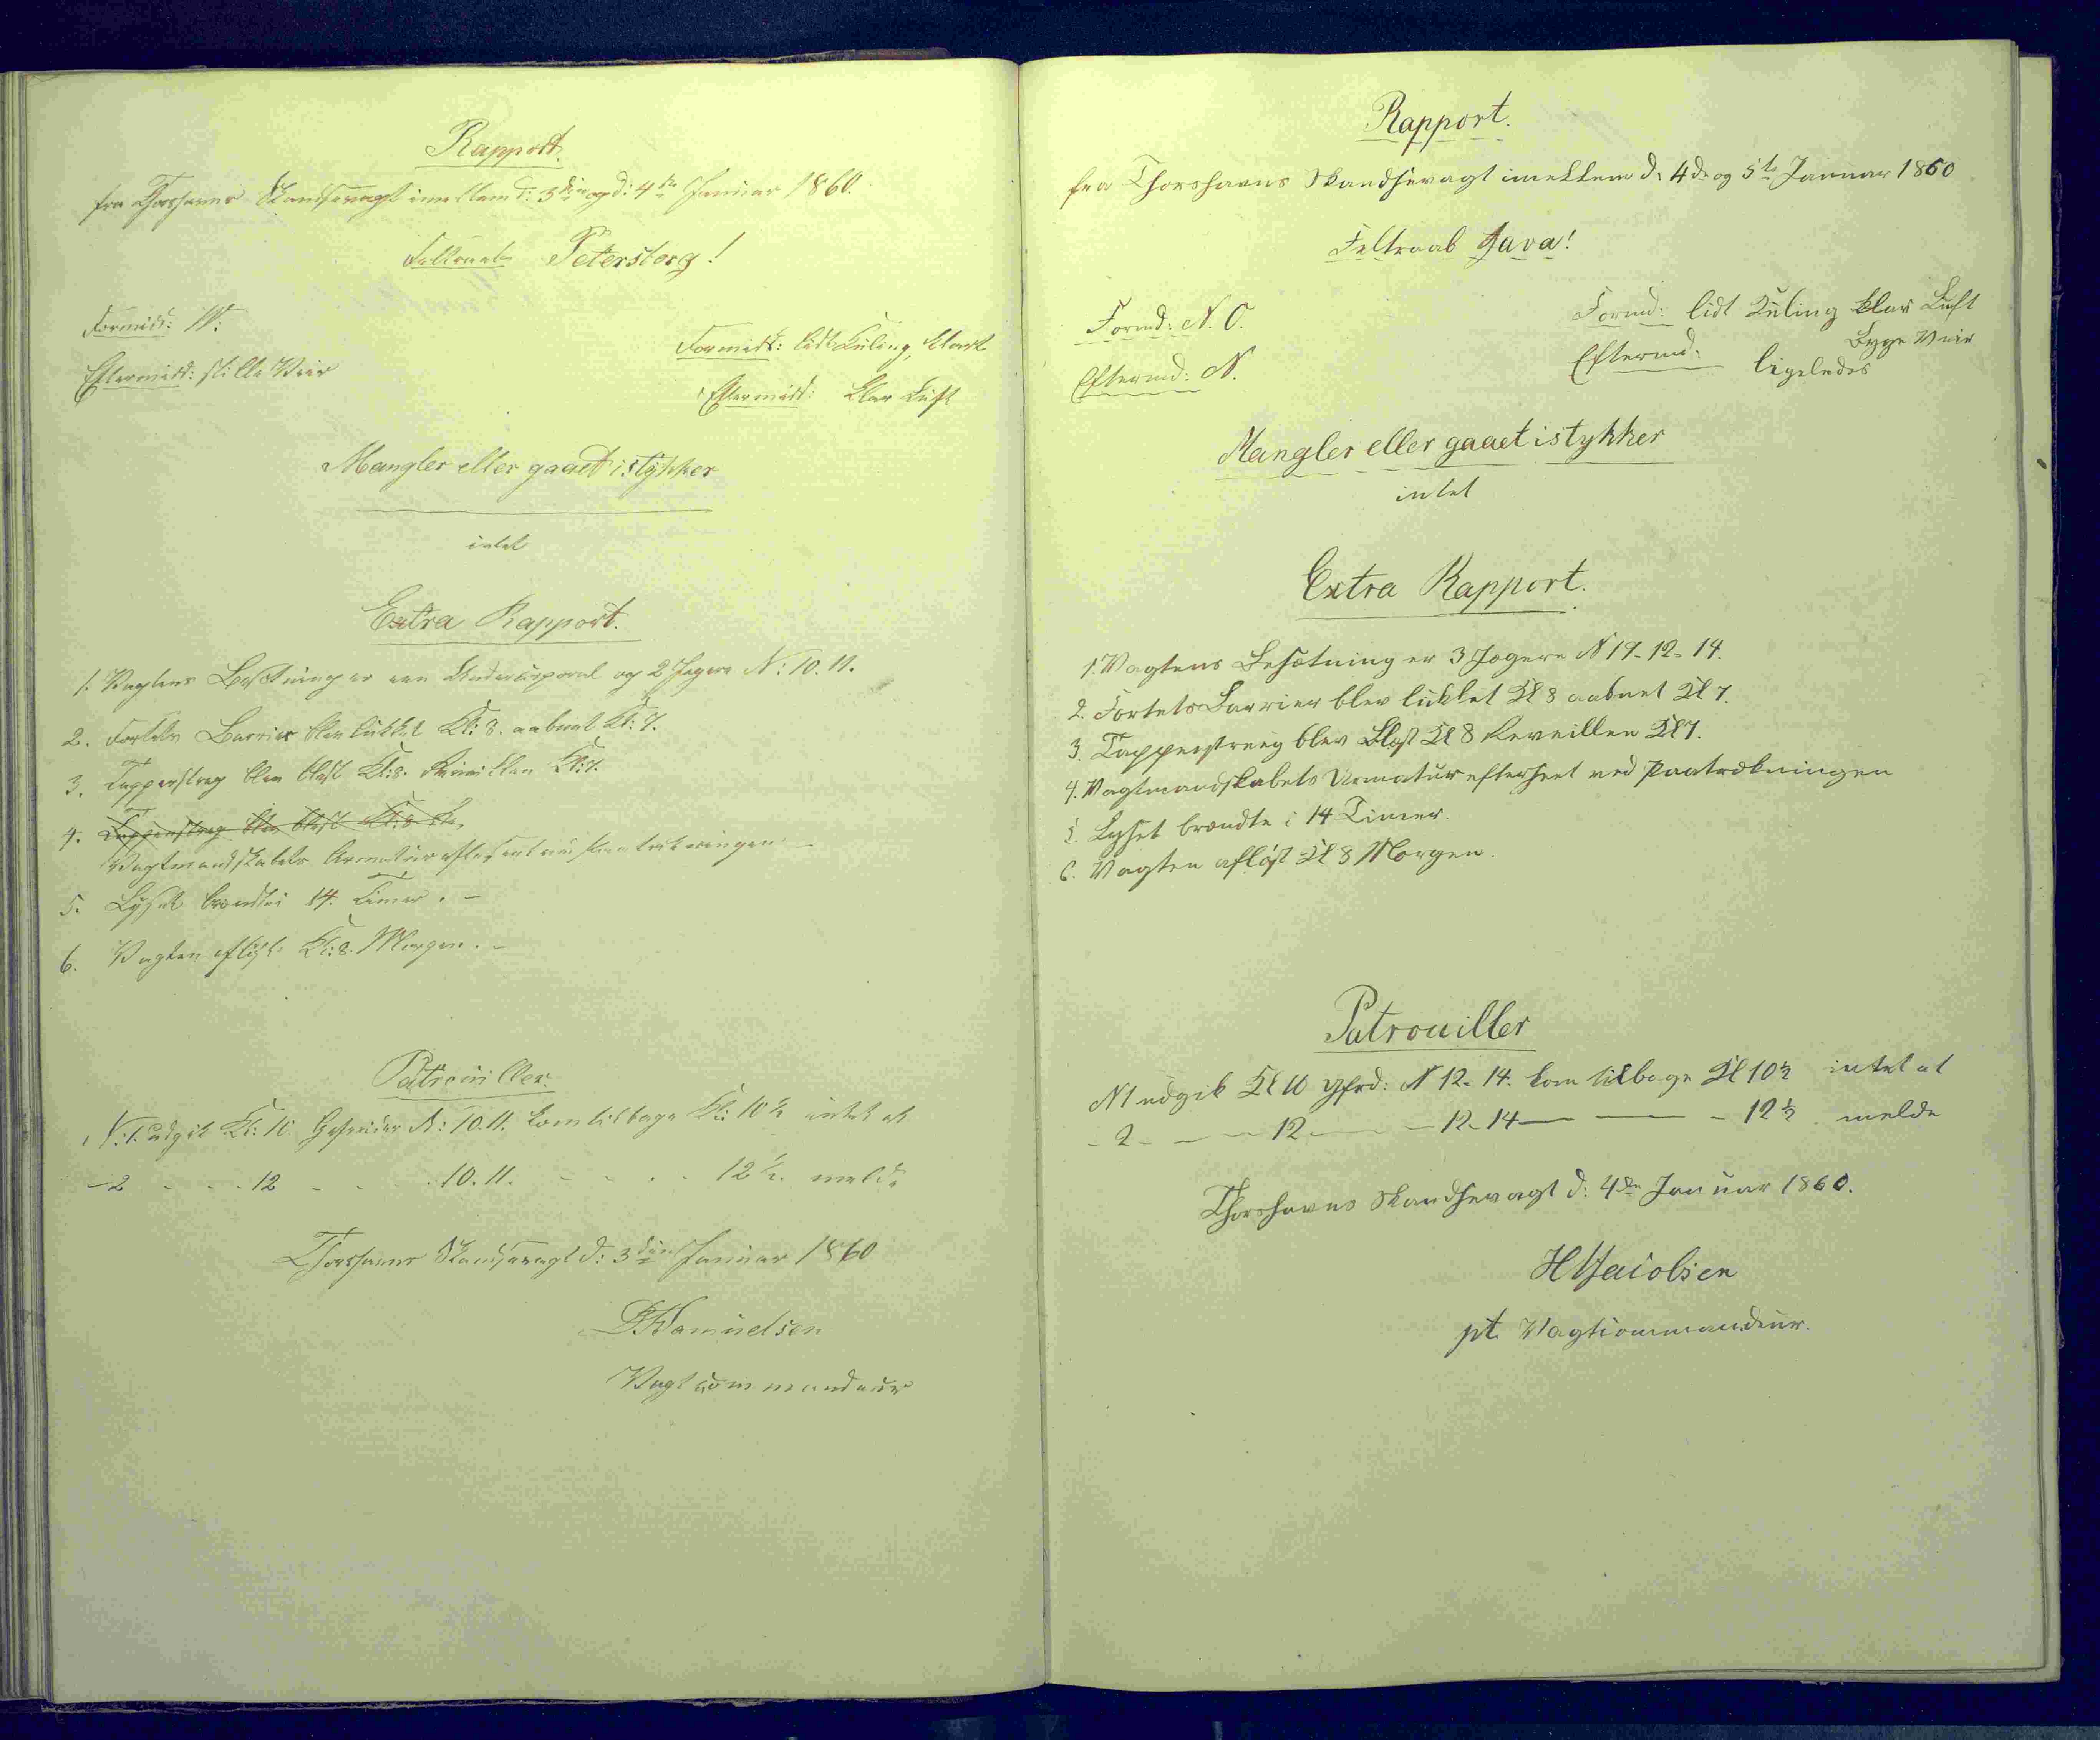 Rapport.
fra Thorshavns Skandsevagt imellem d: 3die og d: 4de Januar 1860.
Feltraab Petersborg!
Formidd: W:
Formidd: lidt Kuling, klart
Eftermidd: stille Veir
Eftermidd: klar Luft
Mangler eller gaaet istykker
intet
Extra Rapport.
1. Vagtens Besætning er een Undercorporal og 2 Jægere N: 10. 11.
2. Fortets Barrier blev lukket Kl: 8. aabnet Kl: 7.
3. Tappenstreg blev blæst Kl: 8. Reveillen Kl: 7.
4. Tappenstreg blev blæst Kl: 8
Vagtmandskabets Armatur efterseet ved Paatrækningen
5. Lyset brændte i 14. Timer. -
6. Vagten afløst Kl: 8. Morgen. -
Patrouiller.
N: 1. udgik Kl: 10. Gefreider N: 10. 11. kom tilbage Kl: 10½ intet at
- 2 - - - 12 - - - 10. 11. - - - - 12½. melde
Thorshavns Skandsevagt d: 3die Januar 1860
Samuelsen
Vagtcommandeur
Rapport.
fra Thorshavns Skandsevagt imellem d: 4de og 5te Januar 1860
Feltraab Java!
Formd: N. O.
Formd: lidt Kuling klar Luft
Byge Veir
Eftermd: N.
Eftermd: ligeledes
Mangler eller gaaet istykker
intet
Extra Rapport.
1. Vagtens Besætning er 3 Jægere N 19- 12- 14.
2. Fortets Barrier blev lukket Kl 8 aabnet Kl 7.
3. Tappenstreeg blev Blæst Kl 8 Reveillen Kl 7.
4. Vagtmandskabets Armatur efterseet ved Paatrækningen
5. Lyset brændte i 14 Timer.
6. Vagten afløst Kl 8 Morgen.
Patrouiller
N 1 udgik Kl 10 Gfrd: N 12- 14. kom tilbage Kl 10½ intet at
- 2 - - - 12 - - 12- 14 - - - 12½. melde
Thorshavns Skandsevagt d: 4de Januar 1860.
H Jacobsen
pt. Vagtcommandeur.